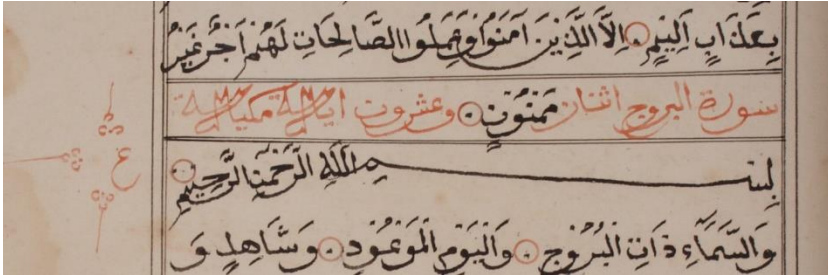 بِعَذَابٍ اَلِيْمٍ اِلَّا الَّذِيْنَ آمَنُوْا وَعَمِلُوا الصَّالِحَاتِ لَهُمْ اَجْرٌ غَيْرُ
سورة البروج اثنتان مَمْنُوْنٍ وعشرون اية مكية
بِسْمِ اللّٰهِ الرَّحْمٰنِ الرَّحِيْمِ
وَالسَّمَآءِ ذَاتِ الْبُرُوْجِ وَالْيَوْمِ الْمَوْعُوْدِ وَشَاهِدٍ وَ
ع